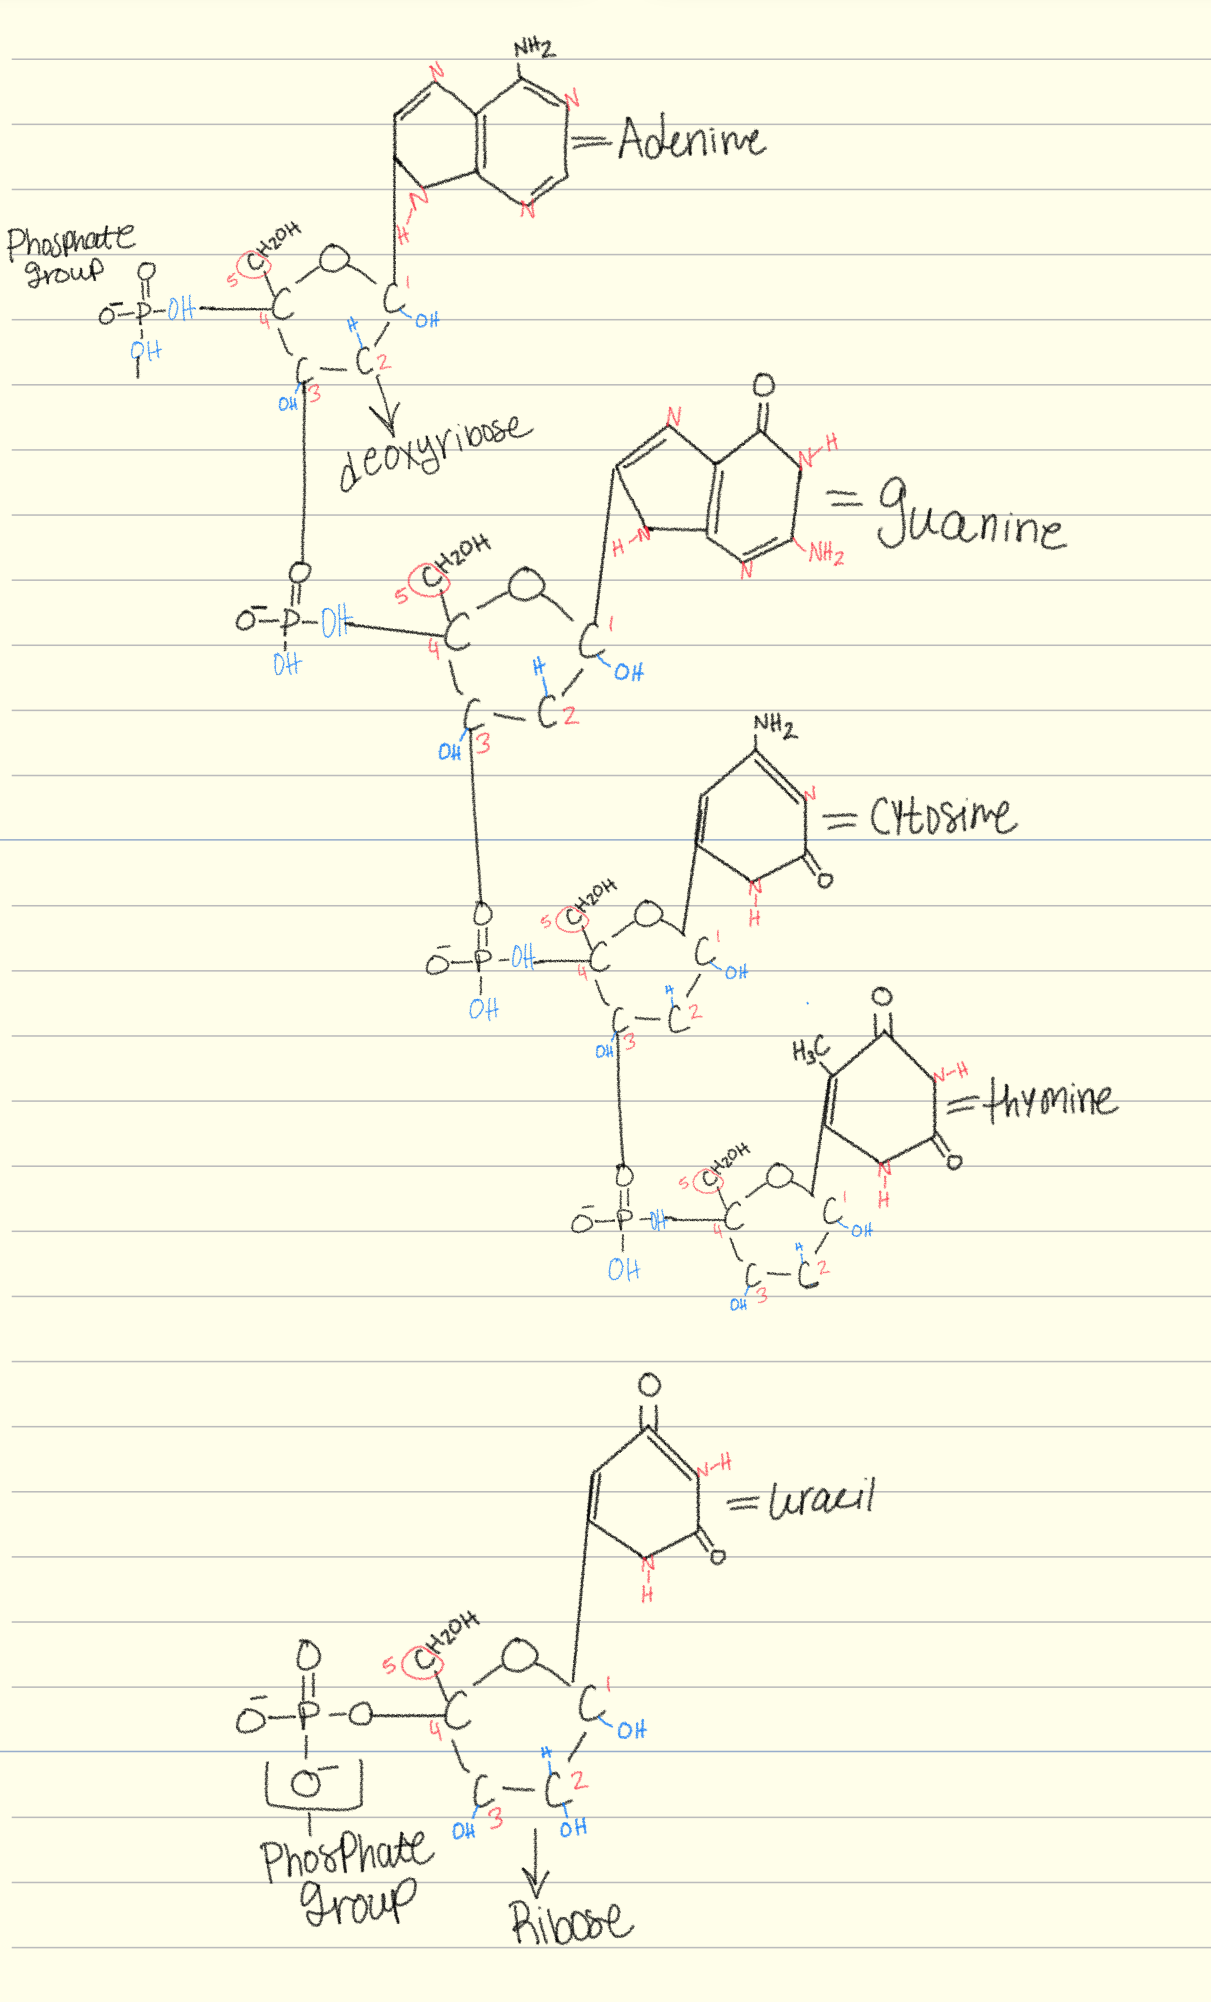 NH2
N
N
= Adenine
N
N
H
Phosphate
group
CH2OH
5
O
O
C 1
C
4
O⁻-P-OH
OH
H
OH
C 2
C
3
OH
deoxyribose
O
N
N-H
= guanine
H-N
N
NH2
CH2OH
5
O
O
O⁻-P-OH
C
4
C 1
OH
H
OH
C 2
C
3
OH
NH2
N
= Cytosime
O
N
H
CH2OH
5
O
O
O⁻-P-OH
C
4
C 1
OH
H
OH
C 2
C
3
OH
O
H3C
N-H
= thymine
O
N
H
CH2OH
5
O
O
O⁻-P-OH
C
4
C 1
OH
H
OH
C 2
C
3
OH
O
N-H
= Uracil
O
N
H
CH2OH
5
O
O
O⁻-P-O
C
4
C 1
OH
H
O⁻
C 2
C
3
OH
OH
Phosphate
group
Ribose